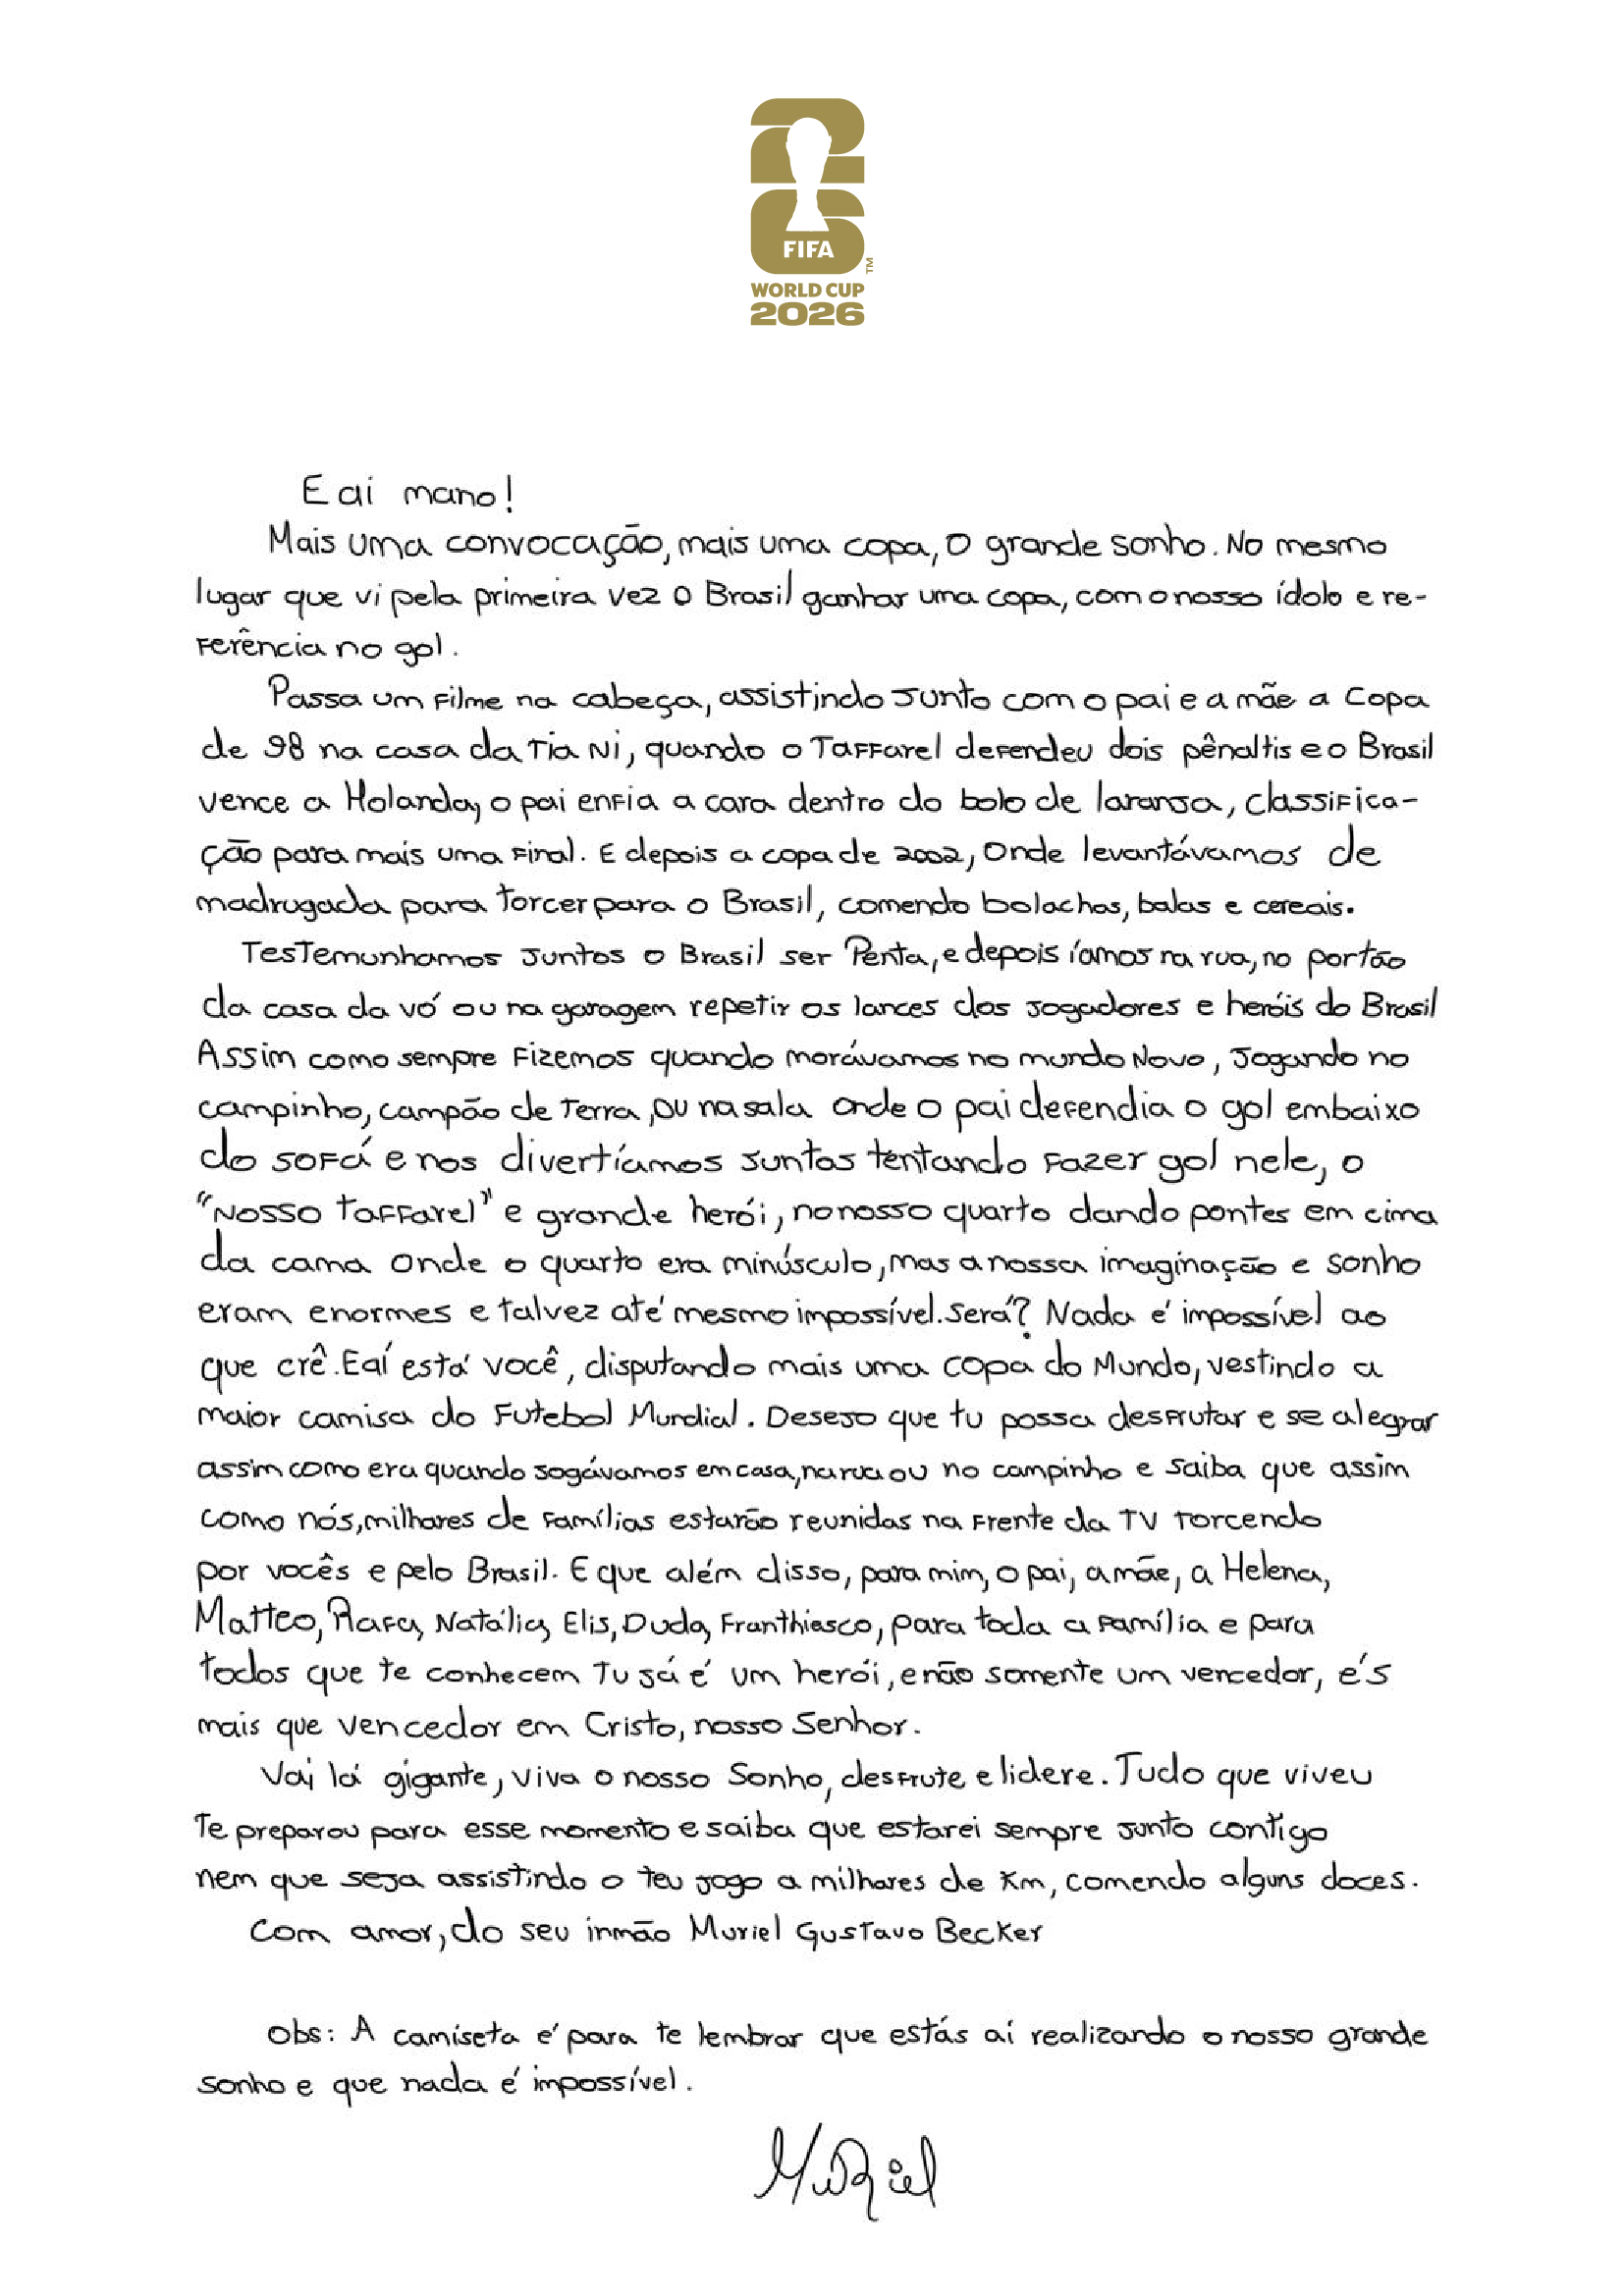 FIFA
TM
WORLD CUP
2026
E ai mano!
Mais uma convocação, mais uma copa, o grande sonho. No mesmo
lugar que vi pela primeira vez o Brasil ganhar uma copa, com o nosso ídolo e re-
ferência no gol.
Passa um filme na cabeça, assistindo junto com o pai e a mãe a Copa
de 98 na casa da Tia Ni, quando o Taffarel defendeu dois pênaltis e o Brasil
vence a Holanda, o pai enfia a cara dentro do bolo de laranja, classifica-
ção para mais uma final. E depois a copa de 2002, onde levantávamos de
madrugada para torcer para o Brasil, comendo bolachas, balas e cereais.
Testemunhamos juntos o Brasil ser Penta, e depois íamos na rua, no portão
da casa da vó ou na garagem repetir os lances dos jogadores e heróis do Brasil
Assim como sempre fizemos quando morávamos no mundo Novo, jogando no
campinho, campão de terra, ou na sala onde o pai defendia o gol embaixo
do sofá e nos divertíamos juntos tentando fazer gol nele, o
"Nosso Taffarel" e grande herói, no nosso quarto dando pontes em cima
da cama onde o quarto era minúsculo, mas a nossa imaginação e sonho
eram enormes e talvez até mesmo impossível. Será? Nada é impossível ao
que crê. E aí está você, disputando mais uma copa do Mundo, vestindo a
maior camisa do Futebol Mundial. Desejo que tu possa desfrutar e se alegrar
assim como era quando jogávamos em casa, na rua ou no campinho e saiba que assim
como nós, milhares de famílias estarão reunidas na frente da TV torcendo
por vocês e pelo Brasil. E que além disso, para mim, o pai, a mãe, a Helena,
Matteo, Rafa, Natália, Elis, Duda, Franthiesco, para toda a família e para
todos que te conhecem tu já é um herói, e não somente um vencedor, és
mais que vencedor em Cristo, nosso Senhor.
Vai lá gigante, viva o nosso Sonho, desfrute e lidere. Tudo que viveu
te preparou para esse momento e saiba que estarei sempre junto contigo
nem que seja assistindo o teu jogo a milhares de Km, comendo alguns doces.
Com amor, do seu irmão Muriel Gustavo Becker
Obs: A camiseta é para te lembrar que estás aí realizando o nosso grande
sonho e que nada é impossível.
Muriel